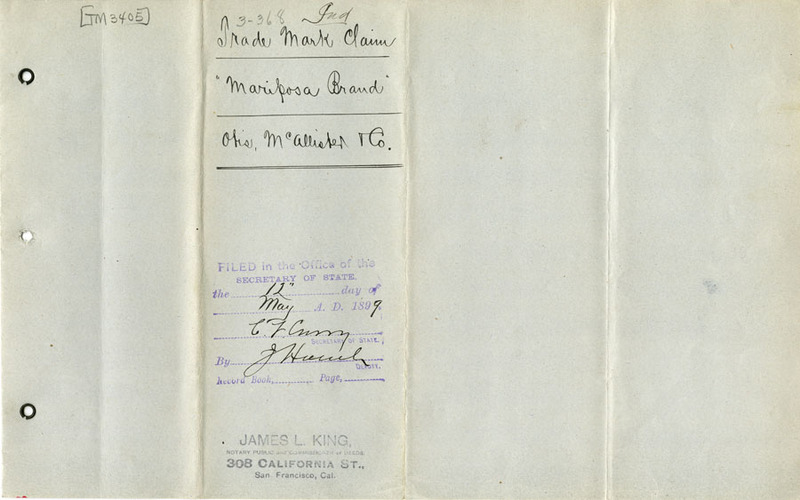 [TM3405]
3-368 Ind
Trade Mark Claim
"Mariposa Brand"
Otis, McAllister & Co.
FILED in the Office of the
SECRETARY OF STATE.
the 12" day of
May A. D. 1899.
C. F. Curry
SECRETARY OF STATE.
By J Hoesch
DEPUTY.
Record Book, Page,
JAMES L. KING,
NOTARY PUBLIC and COMMISSIONER of DEEDS
308 CALIFORNIA ST.,
San Francisco, Cal.